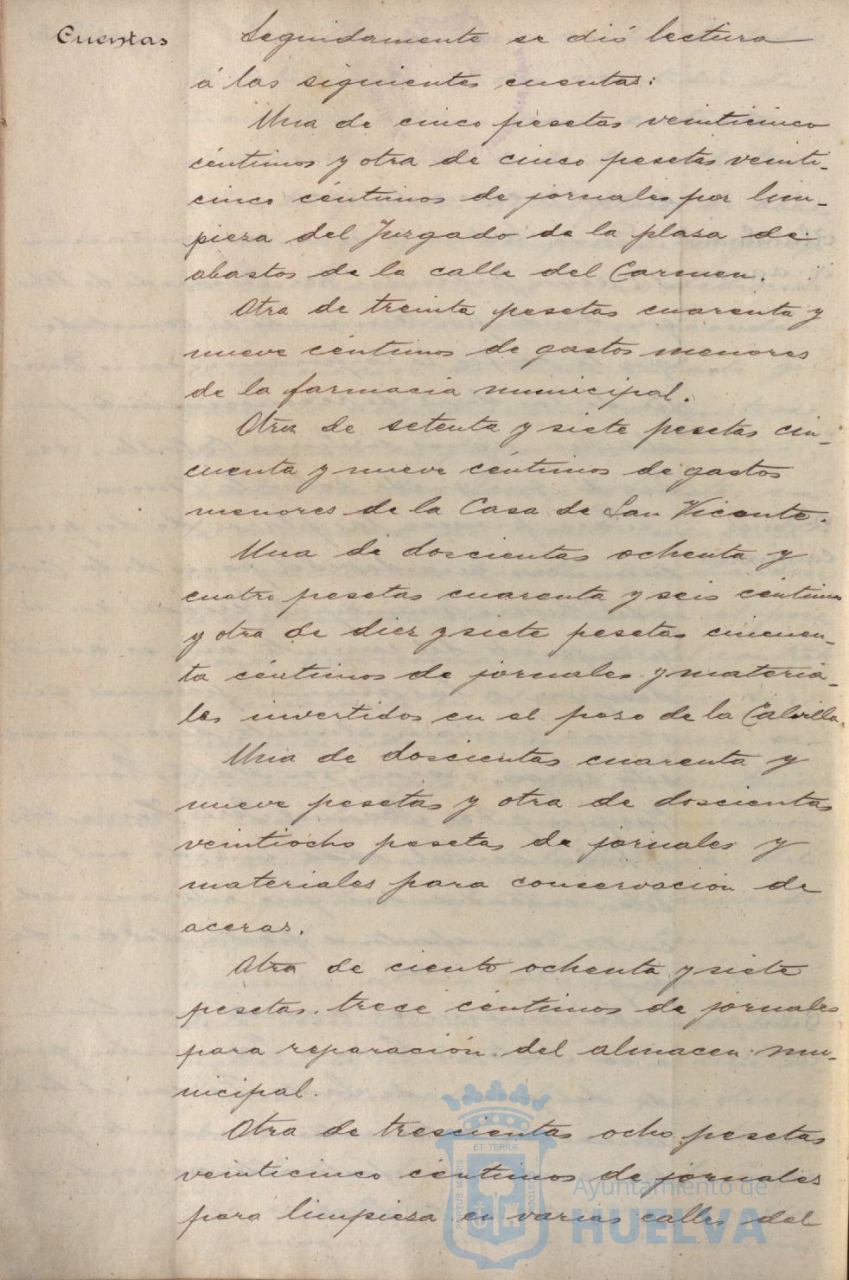 Cuentas
Seguidamente se dió lectura
á las siguientes cuentas:
Una de cinco pesetas veinticinco
céntimos y otra de cinco pesetas veinti-
cinco céntimos de jornales por lim-
pieza del Juzgado de la plasa de
abastos de la calle del Carmen.
Otra de treinta pesetas cuarenta y
nueve céntimos de gastos menores
de la farmacia municipal.
Otra de setenta y siete pesetas cin-
cuenta y nueve céntimos de gastos
menores de la Casa de San Vicente.
Una de doscientas ochenta y
cuatro pesetas cuarenta y seis céntimos
y otra de diez y siete pesetas cincuen-
ta céntimos de jornales y materia-
les invertidos en el poso de la Calvilla.
Una de doscientas cuarenta y
nueve pesetas y otra de doscientas
veintiocho pesetas de jornales y
materiales para conservacion de
aceras.
Otra de ciento ochenta y siete
pesetas trece céntimos de jornales
para reparación del almacen mu-
nicipal.
Otra de trescientas ocho pesetas
veinticinco céntimos de jornales
para limpiesa en varias calles del
Ayuntamiento de
HUELVA